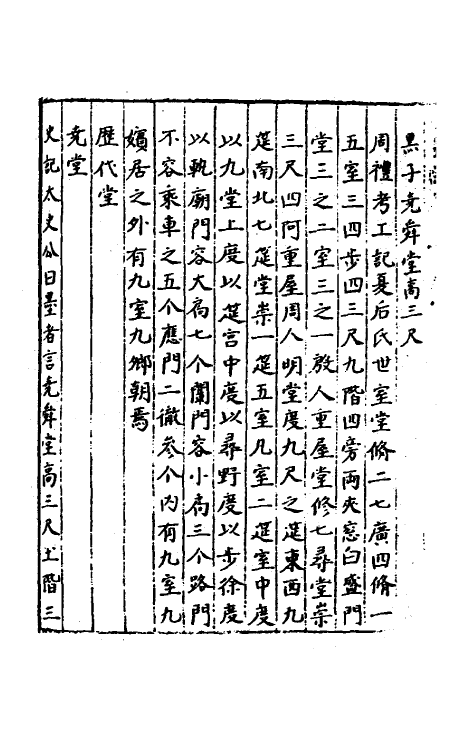 墨子堯舜堂高三尺
周禮考工記夏后氏世室堂脩二七廣四脩一
五室三四步四三尺九階四旁兩夾窓白盛門
堂三之二室三之一殷人重屋堂修七尋堂崇
三尺四阿重屋周人明堂度九尺之筵東西九
筵南北七筵堂崇一筵五室凡室二筵室中度
以九堂上度以筵宫中度以尋野度以步徐度
以軌廟門容大扃七个闈門容小扃三个路門
不容乘車之五个應門二徹參个内有九室九
嬪居之外有九室九鄉朝焉
歴代堂
堯堂
史記太史公曰墨者言堯舜堂高三尺土階三